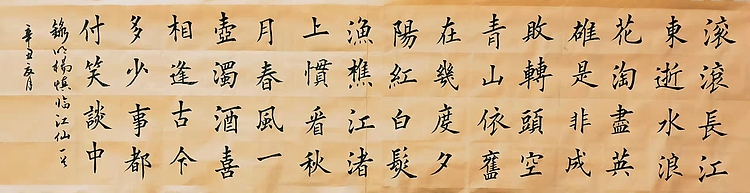 滾滾長江
東逝水浪
花淘盡英
雄是非成
敗轉頭空
青山依舊
在幾度夕
陽紅白髮
漁樵江渚
上慣看秋
月春風一
壺濁酒喜
相逢古今
多少事都
付笑談中
錄明楊慎临江仙一首
辛丑夏月